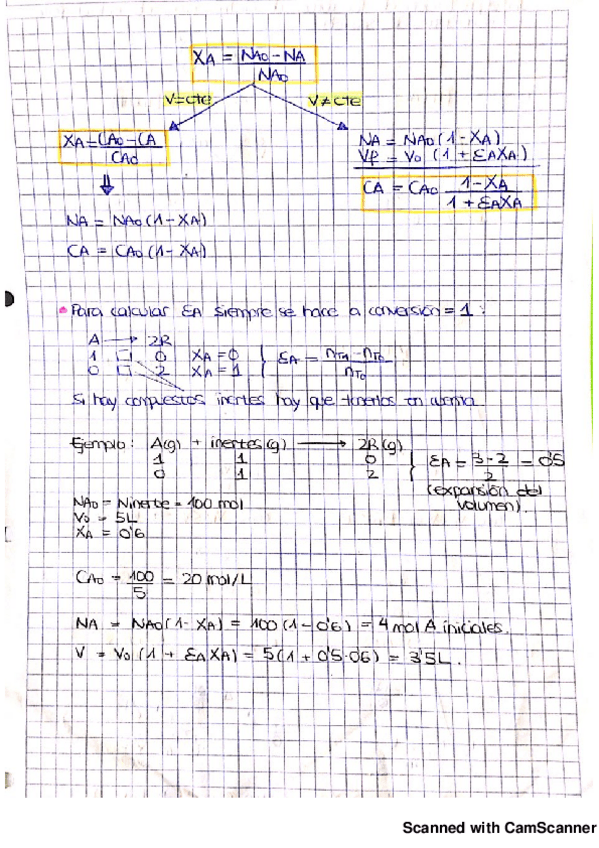 XA = NAo - NA / NAo
V=cte V≠cte
XA = CAo - CA / CAo
NA = NAo (1 - XA)
Vf = Vo (1 + εAXA)
CA = CAo 1 - XA / 1 + εAXA
NA = NAo (1 - XA)
CA = CAo (1 - XA)
• Para calcular εA siempre se hace a conversión = 1 :
A → 2R
1 0 XA = 0
0 2 XA = 1
εA = nT1 - nTo / nTo
Si hay compuestos inertes hay que tenerlos en cuenta
Ejemplo: A(g) + inertes(g) → 2R(g)
1 1 0
0 1 2
εA = 3 - 2 / 2 = 0'5
(expansión del
volumen).
NAo = Ninerte = 100 mol
Vo = 5L
XA = 0'6
CAo = 100 / 5 = 20 mol/L
NA = NAo (1 - XA) = 100 (1 - 0'6) = 4 mol A iniciales.
V = Vo (1 + εAXA) = 5 (1 + 0'5·0'6) = 3'5L.
Scanned with CamScanner